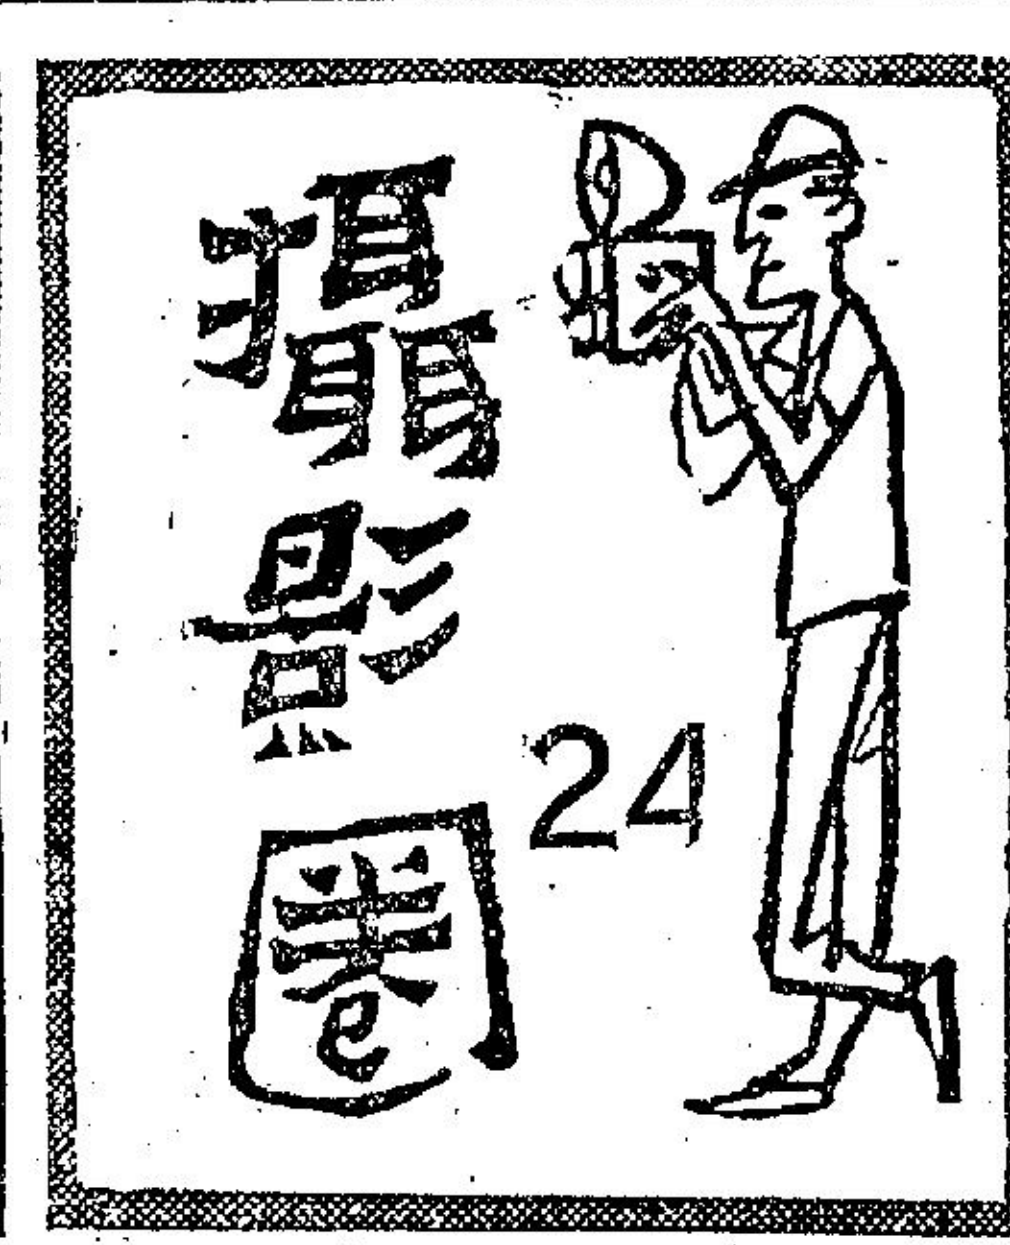 攝影圈
24